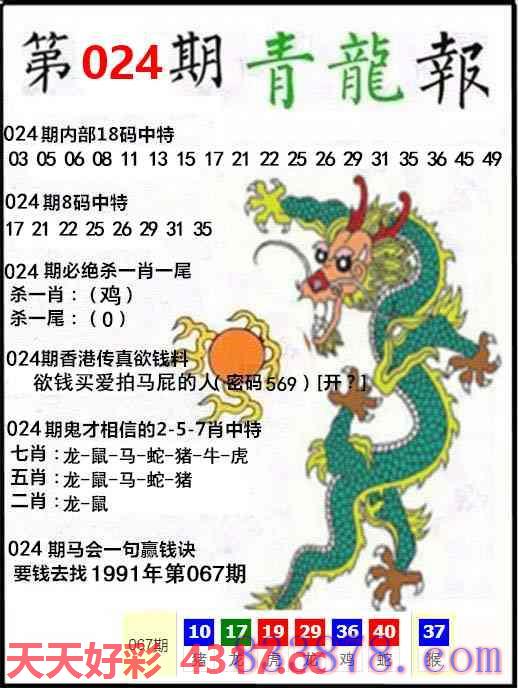 第024期青龍報
024期内部18码中特
03 05 06 08 11 13 15 17 21 22 25 26 29 31 35 36 45 49
024期8码中特
17 21 22 25 26 29 31 35
024 期必绝杀一肖一尾
杀一肖：（鸡）
杀一尾：（0）
024期香港传真欲钱料
欲钱买爱拍马屁的人（密码569）[开？]
024期鬼才相信的2-5-7肖中特
七肖：龙-鼠-马-蛇-猪-牛-虎
五肖：龙-鼠-马-蛇-猪
二肖：龙-鼠
024 期马会一句赢钱诀
要钱去找1991年第067期
10 17 19 29 36 40 37
067期 猪 龙 虎 龙 鸡 蛇 猴
天天好彩